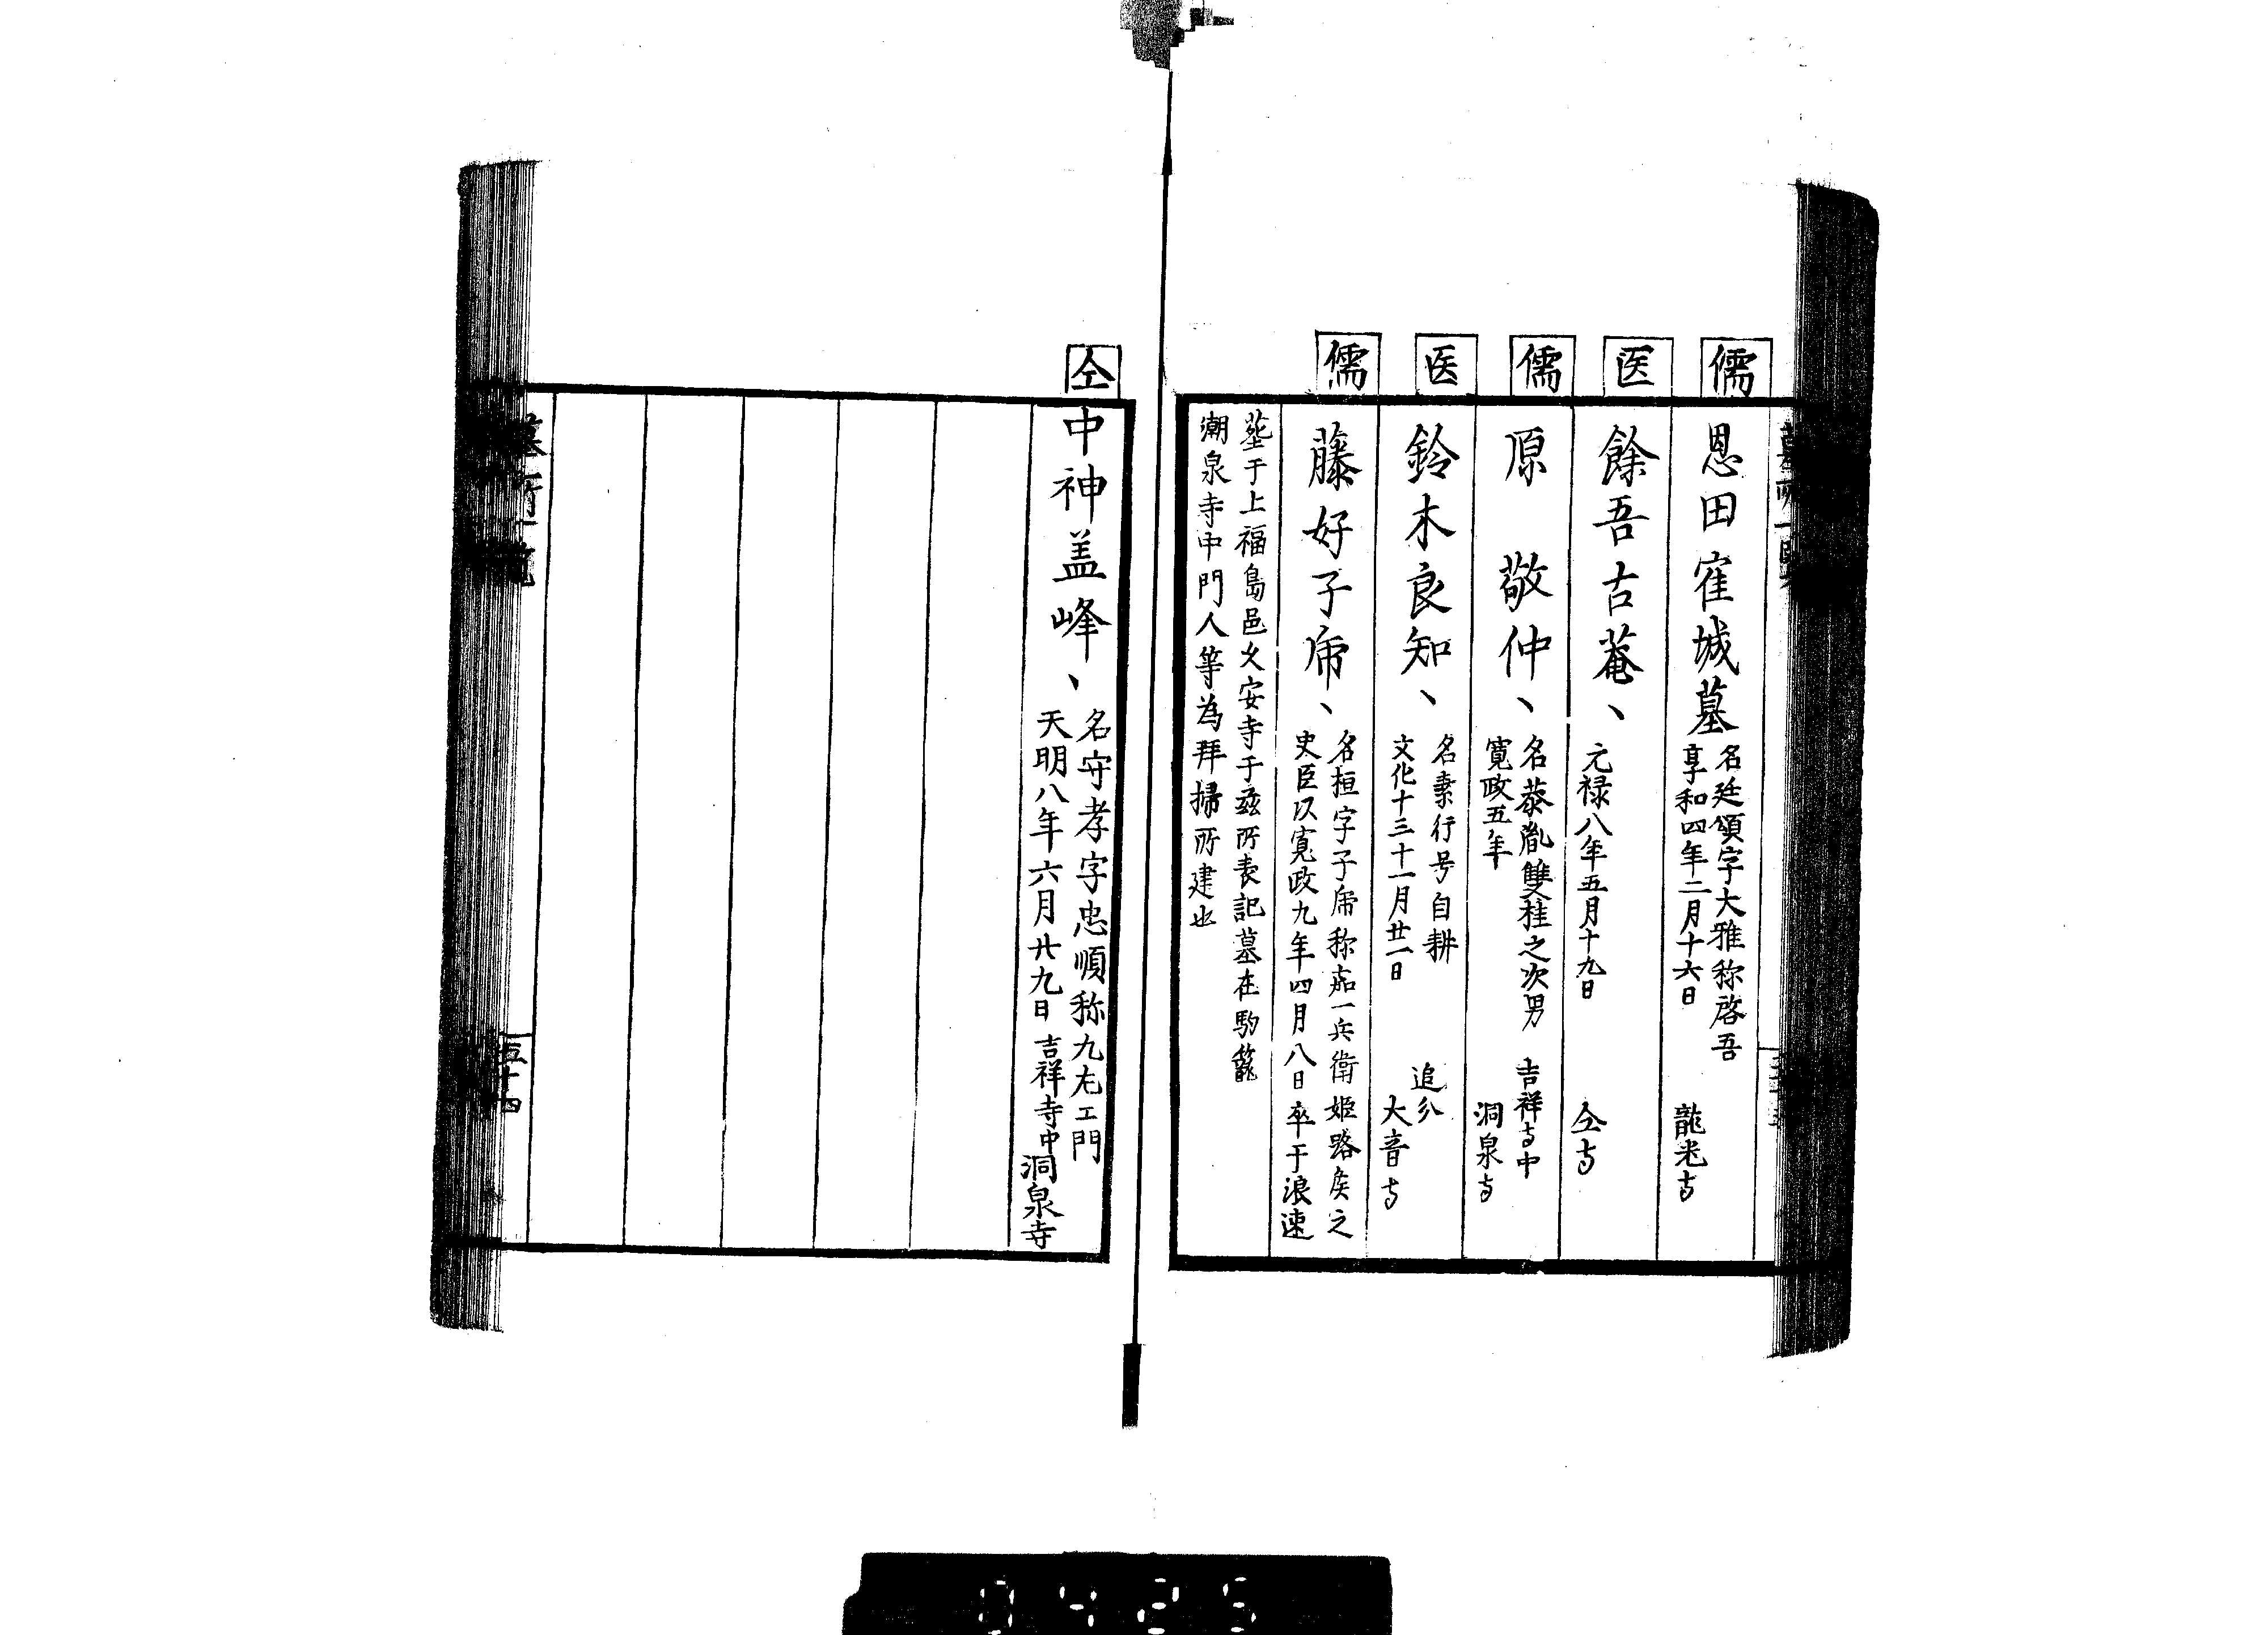 儒
恩田寉城墓
名廷頌字大雅称啓吾
享和四年二月十六日
龍光寺
医
餘吾古菴、
元禄八年五月十九日
仝寺
儒
原 敬仲、
名恭胤雙桂之次男
寛政五年
吉祥寺中
洞泉寺
医
鈴木良知、
名素行号自耕
文化十三十一月廿一日
追分
大音寺
儒
藤好子帠、
名桓字子帠称嘉一兵衛姫路矦之
史臣以寛政九年四月八日卒于浪速
塟于上福島邑久安寺于兹所表記墓在駒籠
潮泉寺中門人等為拝掃所建也
仝
中神盖峰、
名守孝字忠順称九左エ門
天明八年六月廿九日
吉祥寺中
洞泉寺
墓所一覧
五十四
0425